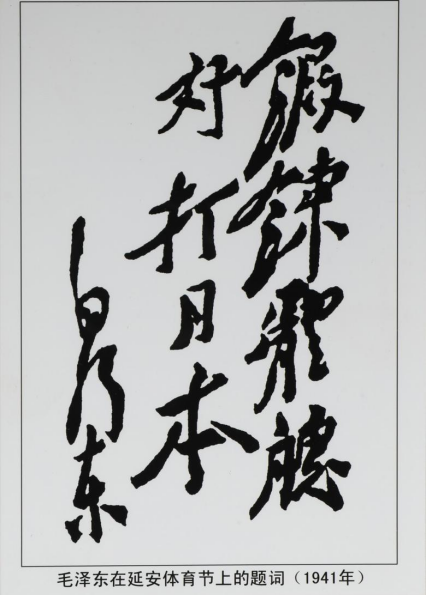 鍛鍊體魄
好打日本
毛澤东
毛泽东在延安体育节上的题词（1941年）